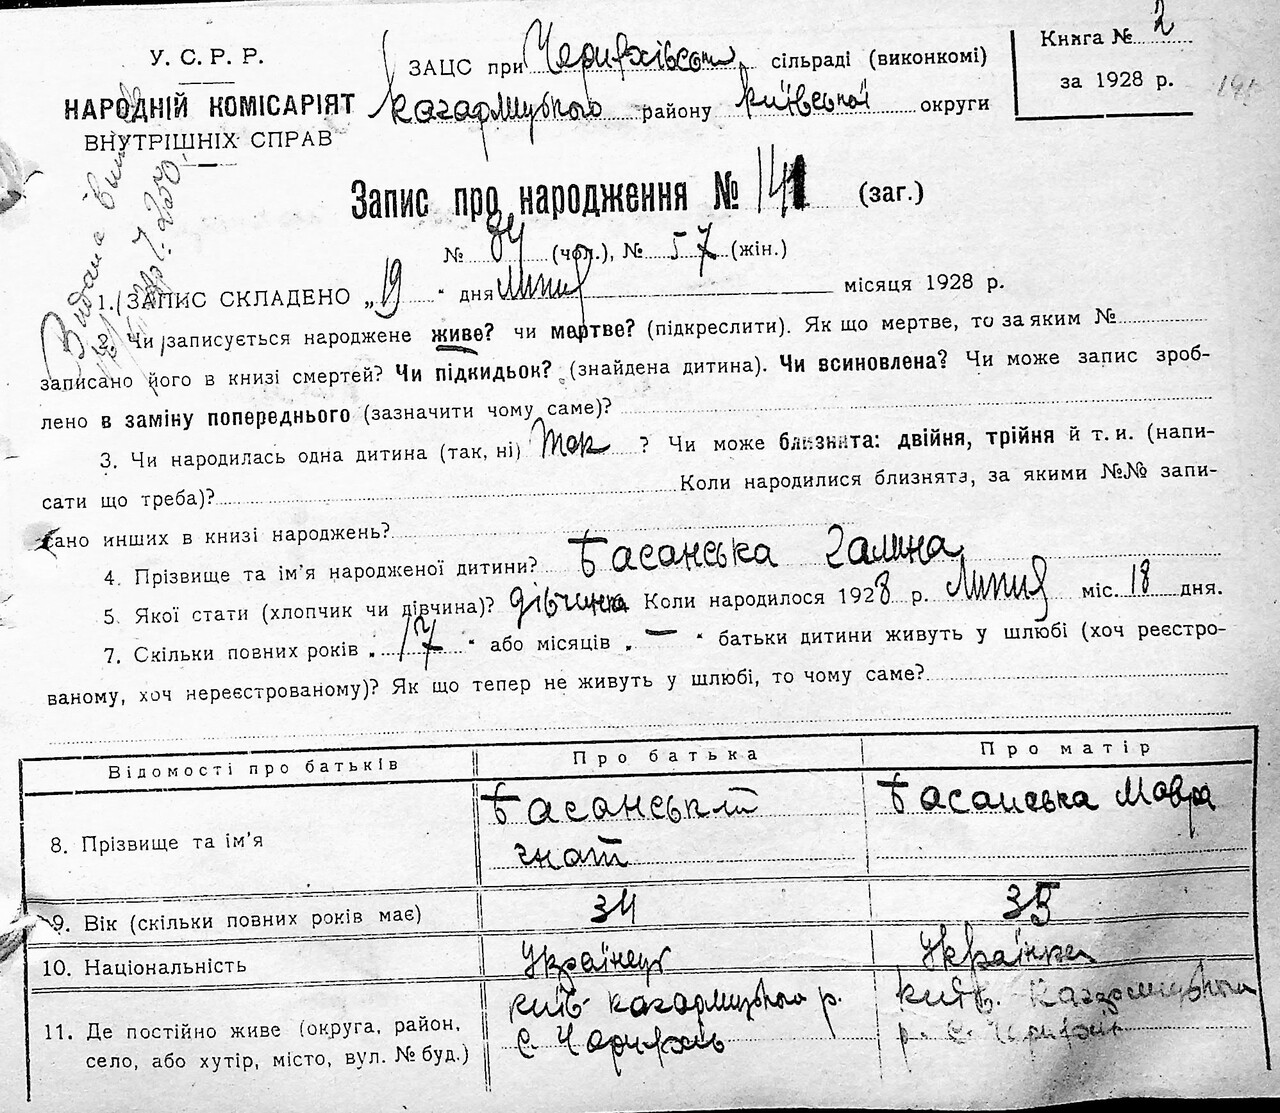 У. С. Р. Р.
НАРОДНІЙ КОМІСАРІЯТ
ВНУТРІШНІХ СПРАВ
ЗАЦС при сільраді (виконкомі)
Кагарлицького району Київської округи
Книга № 2
за 1928 р.
Видана
Запис про народження № 141 (заг.)
№ 84 (чол.), № 57 (жін.)
1. ЗАПИС СКЛАДЕНО „19“ дня Липня місяця 1928 р.
2. Чи записується народжене живе? чи мертве? (підкреслити). Як що мертве, то за яким №
записано його в книзі смертей? Чи підкидьок? (знайдена дитина). Чи всиновлена? Чи може запис зроб-
лено в заміну попереднього (зазначити чому саме)?
3. Чи народилась одна дитина (так, ні) Так ? Чи може близнята: двійня, трійня й т. и. (напи-
сати що треба)? Коли народилися близнята, за якими №№ запи-
сано инших в книзі народжень?
4. Прізвище та ім'я народженої дитини? Басанська Галина
5. Якої стати (хлопчик чи дівчина)? дівчинка Коли народилося 1928 р. Липня міс. 18 дня.
7. Скільки повних років „17“ або місяців „—“ батьки дитини живуть у шлюбі (хоч реєстро-
ваному, хоч нереєстрованому)? Як що тепер не живуть у шлюбі, то чому саме?
Відомості про батьків Про батька Про матір
8. Прізвище та ім'я Басанський Гнат Басанська Мавра
9. Вік (скільки повних років має) 34 35
10. Національність Українець Українка
11. Де постійно живе (округа, район,
село, або хутір, місто, вул. № буд.)
Київ. Кагарлицького р.
с.
Київ. Кагарлицького
р. с.